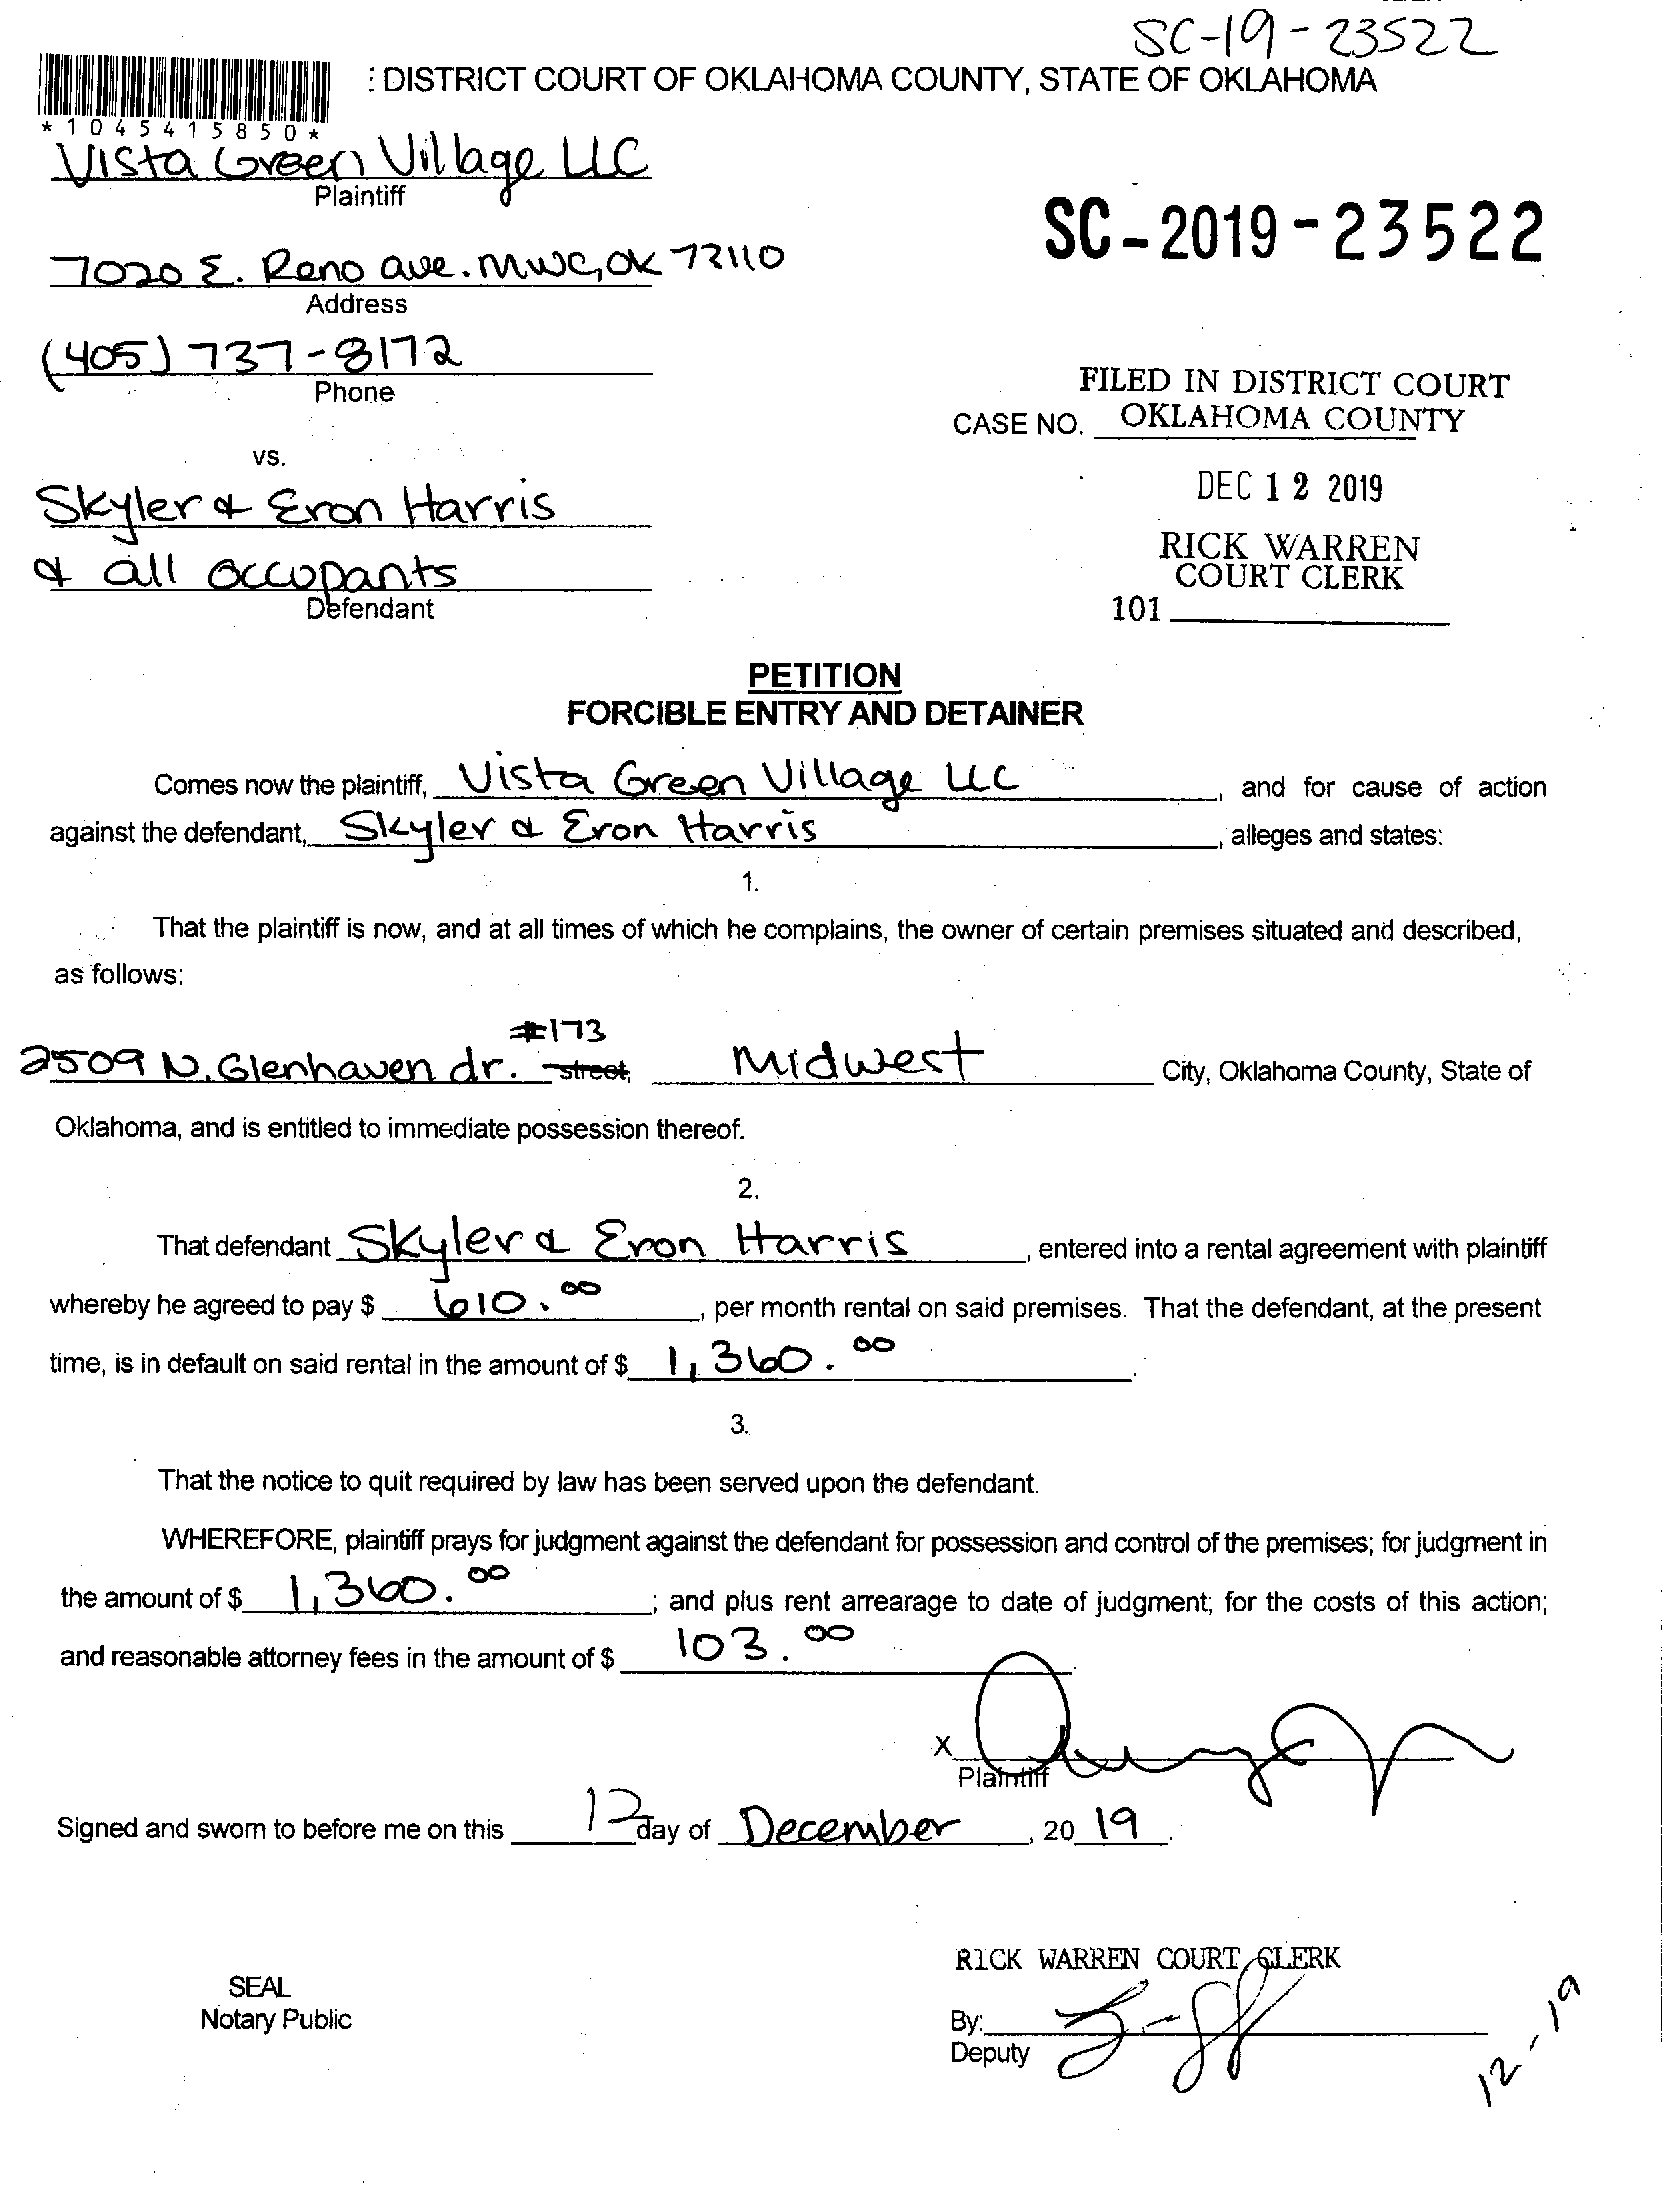 SC-19-23522
: DISTRICT COURT OF OKLAHOMA COUNTY, STATE OF OKLAHOMA
*1045415850*
Vista Green Village LLC
Plaintiff
SC-2019-23522
7020 E. Reno ave. MWC, OK 73110
Address
(405) 737-8172
Phone
FILED IN DISTRICT COURT
CASE NO. OKLAHOMA COUNTY
vs.
DEC 12 2019
Skyler & Eron Harris
RICK WARREN
& all occupants
COURT CLERK
Defendant
101
PETITION
FORCIBLE ENTRY AND DETAINER
Comes now the plaintiff, Vista Green Village LLC, and for cause of action
against the defendant, Skyler & Eron Harris, alleges and states:
1.
That the plaintiff is now, and at all times of which he complains, the owner of certain premises situated and described,
as follows:
#173
2509 N. Glenhaven dr. street, Midwest City, Oklahoma County, State of
Oklahoma, and is entitled to immediate possession thereof.
2.
That defendant Skyler & Eron Harris, entered into a rental agreement with plaintiff
whereby he agreed to pay $ 610.00, per month rental on said premises. That the defendant, at the present
time, is in default on said rental in the amount of $ 1,360.00.
3.
That the notice to quit required by law has been served upon the defendant.
WHEREFORE, plaintiff prays for judgment against the defendant for possession and control of the premises; for judgment in
the amount of $ 1,360.00; and plus rent arrearage to date of judgment; for the costs of this action;
and reasonable attorney fees in the amount of $ 103.00
X
Plaintiff
Signed and sworn to before me on this 12 day of December, 2019.
RICK WARREN COURT CLERK
SEAL
Notary Public
By:
Deputy
12-19